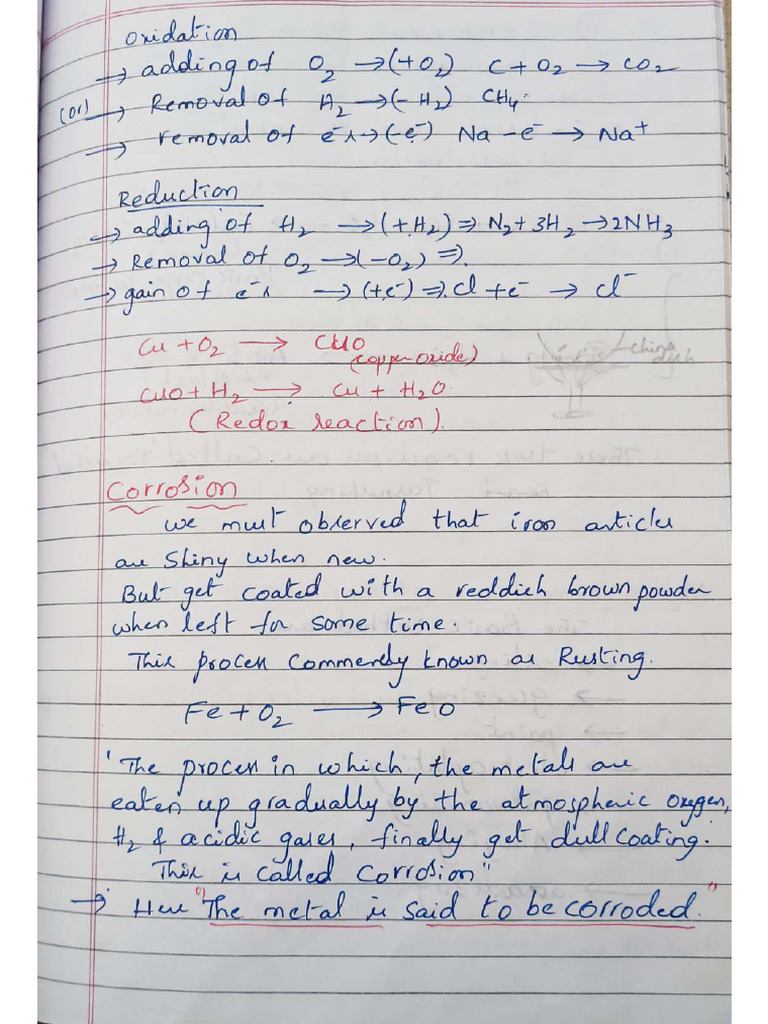 Oxidation
→ adding of O₂ → (+O₂) C + O₂ → CO₂
(or) → Removal of H₂ → (-H₂) CH₄
→ removal of e⁻s → (-e⁻) Na - e⁻ → Na⁺
Reduction
→ adding of H₂ → (+H₂) ⇒ N₂ + 3H₂ → 2NH₃
→ Removal of O₂ → (-O₂) ⇒
→ gain of e⁻s → (+e⁻) ⇒ Cl + e⁻ → Cl⁻
Cu + O₂ → CuO
(copper oxide)
CuO + H₂ → Cu + H₂O
(Redox reaction).
china
dish
Corrosion
We must observed that iron articles
are Shiny when new.
But get coated with a reddish brown powder
when left for some time.
This process commenely known as Rusting.
Fe + O₂ → FeO
"The process in which, the metals are
eaten up gradually by the atmospheric oxygen,
H₂ & acidic gases, finally get dull coating.
This is called Corrosion"
→ Here "The metal is said to be corroded."